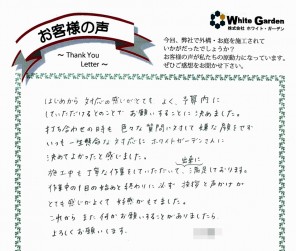 お客様の声
～ Thank You
Letter ～
White Garden
株式会社 ホワイト・ガーデン
今回、弊社で外構・お庭を施工されて
いかがだったでしょうか?
お客様の声が私たちの原動力になっています。
ぜひご感想をお聞かせ下さい。
はじめから対応の感じがとても よく、予算内に
していただけるとのことで お願いすることに決めました。
打ち合わせの時も 色々な質問にまけて 嫌な顔をせず
いつも一生懸命な対応に ホワイトガーデンさんに
決めてよかったと感じました。
出来に
施工中も丁寧な作業をしていただいて、満足しております。
作業中の1日の始めと終わりに必ず 挨拶と声かけが
とても感じがよくて 好感がもてました。
これからまた何かお願いすることがありましたら
よろしくお願いします。